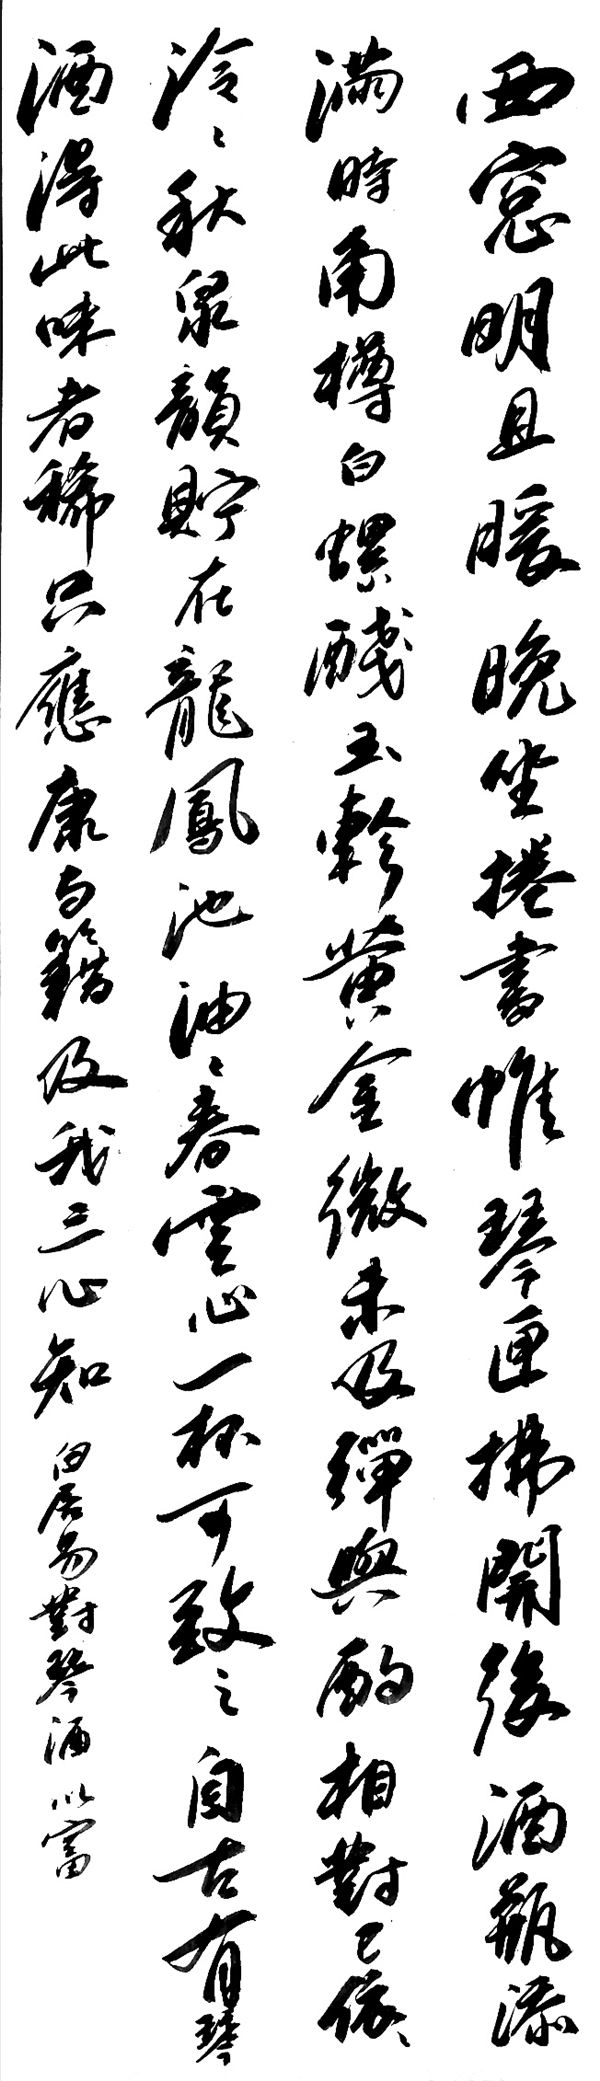 西窓明且暖晚坐捲書帷琴匣拂開後酒瓶添
滿時角樽白螺醆玉軫黃金徽未及彈與酌相對已依〻
泠〻秋泉韻貯在龍鳳池油〻春雲心一杯可致之自古有琴
酒得此味者稀只應康與籍及我三心知
白居易對琴酒以富